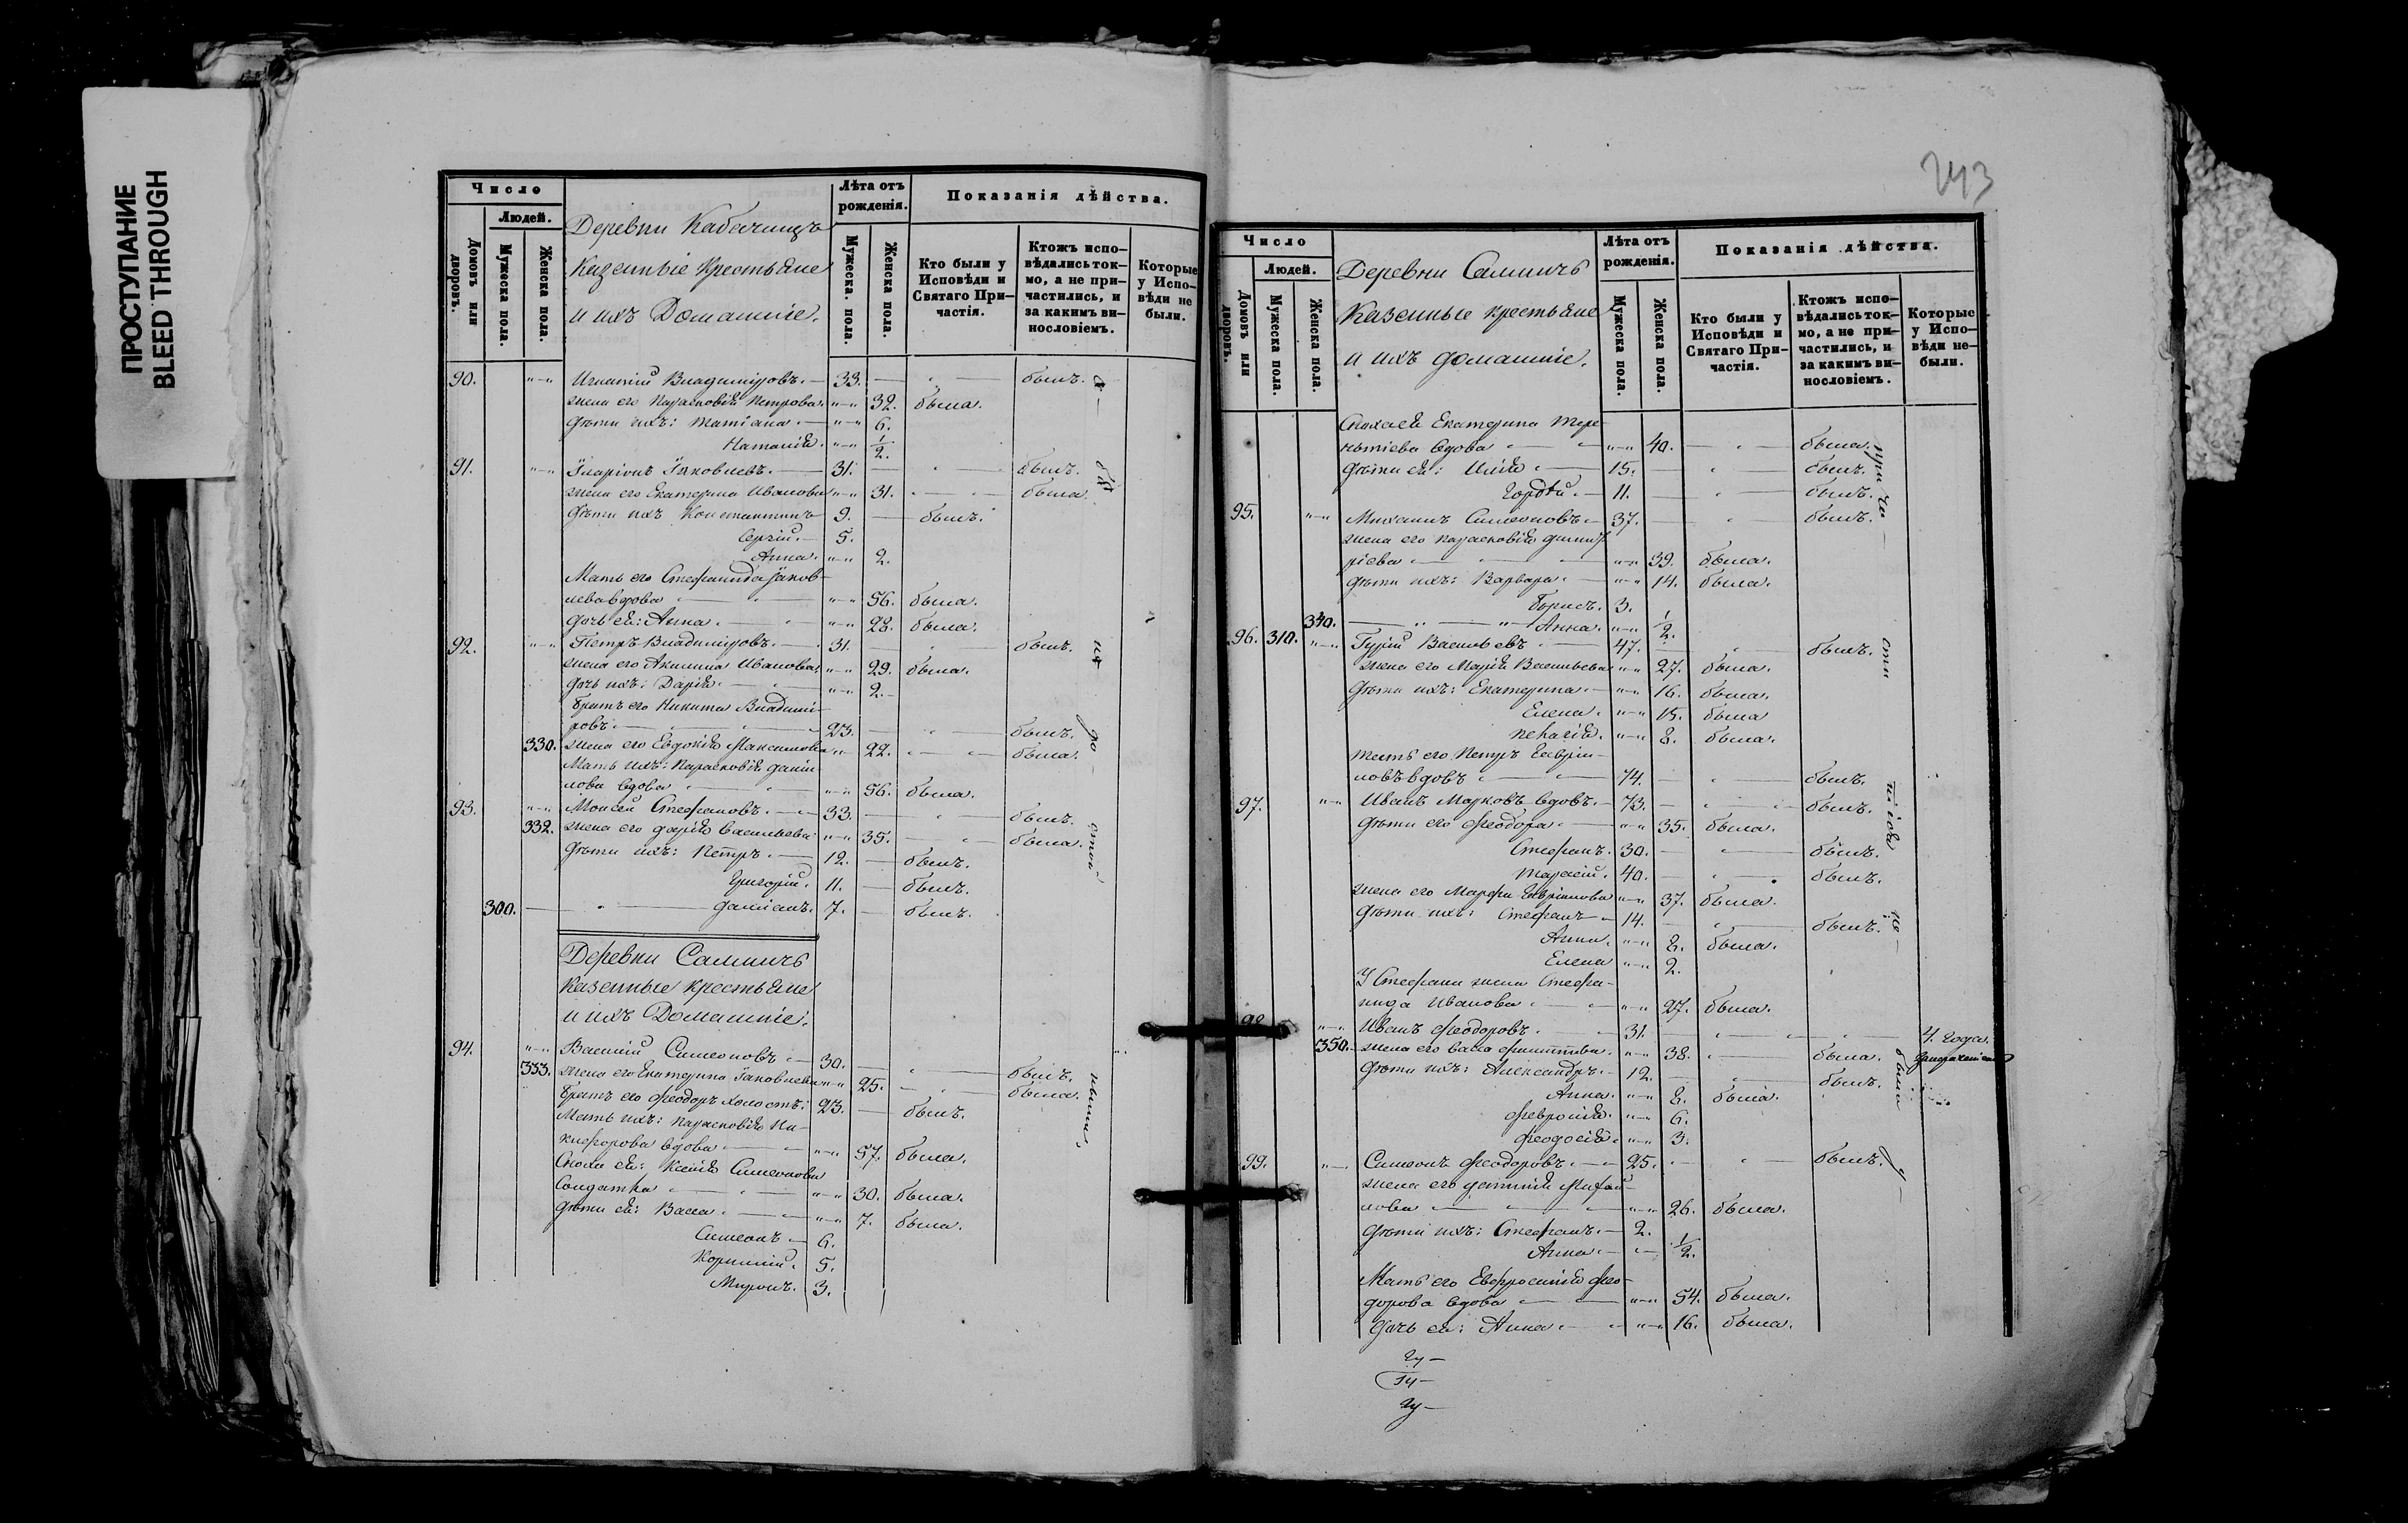 ПРОСТУПАНИЕ
BLEED THROUGH
Число
Людей.
Домовъ или дворовъ.
Мужеска пола.
Женска пола.
Деревни
Казенные Крестьяне
и ихъ Домашніе.
Лѣта отъ рожденія.
Мужеска. пола.
Женска пола.
Показанія дѣйства.
Кто были у Исповѣди и Святаго При-частія.
Ктожъ испо-вѣдались ток-мо, а не при-частились, и за какимъ ви-нословіемъ.
Которые у Испо-вѣди не были.
90. „—„ Игнатій Владиміровъ. — 33. — был.
жена его Парасковія Петрова. „—„ 32. была.
дѣти ихъ: Татіана. — „—„ 6.
Наталія. „—„ 1/2.
91. „—„ Іларіонъ Іаковлевъ. — 31. — былъ.
жена его Екатерина Иванова „—„ 31. — была.
дѣти ихъ Константинъ 9. — былъ.
Сергій. — 5.
Анна. „—„ 2.
Мать его Стефанида Іаков-
лева вдова „—„ 56. была.
дочь ея: Анна. — „—„ 28. была.
92. „—„ Петръ Владиміровъ. — 31. — былъ.
жена его Акилина Иванова. „—„ 29. была.
дочь ихъ: Дарія. — „—„ 2.
Братъ его Никита Владимі-
ровъ. — 23. — былъ.
330. жена его Евдокія Максимова „—„ 22. — была.
Мать ихъ: Парасковія Дани-
лова вдова „—„ 56. была.
93. „—„ Моисей Стефановъ. — 33. — былъ.
332. жена его Дарія Васильева „—„ 35. — была.
дѣти ихъ: Петръ. — 12. — былъ.
Григорій. 11. — былъ.
300. — Даміанъ. 7. — былъ.
Деревни Саминичъ
Казенные Крестьяне
и ихъ Домашніе.
94. „—„ Василій Симеоновъ. — 30. — былъ.
333. жена его Екатерина Іаковлева „—„ 25. — была.
Братъ его Феодоръ холостъ: 23. — былъ.
Мать ихъ: Парасковія Ни-
кифорова вдова — „—„ 57. была.
Сноха ея: Ксенія Симеонова
Солдатка — „—„ 30. была.
дѣти ея: Васса. — „—„ 7. была.
Симеонъ — 6.
Корнилій. 5.
Миронъ. 3.
243
Число
Людей.
Домовъ или дворовъ.
Мужеска пола.
Женска пола.
Деревни Саминичъ
Казенные Крестьяне
и ихъ домашніе.
Лѣта отъ рожденія.
Мужеска пола.
Женска пола.
Показанія дѣйства.
Кто были у Исповѣди и Святаго При-частія.
Ктожъ испо-вѣдались ток-мо, а не при-частились, и за какимъ ви-нословіемъ.
Которые у Испо-вѣди не-были.
Екатерина Тере-
нтіева вдова — „—„ 40. — была.
дѣти ея: Илія. — 15. — былъ.
Гордѣй. — 11. — былъ.
95. „—„ Михаилъ Симеоновъ. — 37. — былъ.
жена его Парасковія Димит-
ріева — „—„ 39. была.
дѣти ихъ: Варвара. — „—„ 14. была.
Борисъ. 3.
340. — Анна. „—„ 1/2.
96. 310. „—„ Гурій Васильевъ. — 47. — былъ.
жена его Марія Васильева „—„ 27. была.
дѣти ихъ: Екатерина. — „—„ 16. была.
Елена. „—„ 15. была
Пелагія. „—„ 8. была.
тесть его Петръ
новъ вдовъ — 74. — былъ.
97. „—„ Иванъ Марковъ вдовъ. — 73. — былъ.
дѣти его Феодора. — „—„ 35. была.
Стефанъ. 30. — былъ.
Тарасій. 40. — былъ.
жена его Марфа „—„ 37. была.
дѣти ихъ: Стефанъ — 14. — былъ.
Анна. „—„ 8. была.
Елена „—„ 2.
У Стефана жена Стефа-
нида Иванова. — „—„ 27. была.
98. „—„ Иванъ Феодоровъ. — 31. — 4. года.
350. жена его Васса „—„ 38. — была.
дѣти ихъ: Александръ. — 12. — былъ.
Анна. „—„ 8. была.
Февронія. „—„ 6.
Феодосія. „—„ 3.
99. „—„ Симеонъ Феодоровъ. — 25. — былъ.
жена его
лова — „—„ 26. была.
дѣти ихъ: Стефанъ. — 2.
Анна. — 1/2.
Мать его Евфросинія Фео-
дорова вдова — „—„ 54. была.
дочь ея: Анна. — „—„ 16. была.